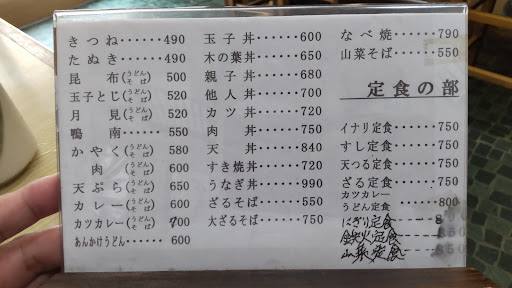 きつね……490
たぬき……490
昆布(うどん そば) 500
玉子とじ(うどん そば) 520
月見(うどん そば) 520
鴨南……550
かやく(うどん そば) 580
肉(うどん そば) 600
天ぷら(うどん そば) 650
カレー(うどん そば) 600
カツカレー(うどん そば) 700
あんかけうどん……600
玉子丼……600
木の葉丼……650
親子丼……680
他人丼……700
カツ丼……720
肉丼……750
天丼……840
すき焼丼……720
うなぎ丼……990
ざるそば……550
大ざるそば……750
なべ焼……790
山菜そば……550
定食の部
イナリ定食……750
すし定食……750
天つる定食……750
ざる定食……750
カツカレー
うどん定食……800
にぎり定食
鉄火定食
山菜定食……850